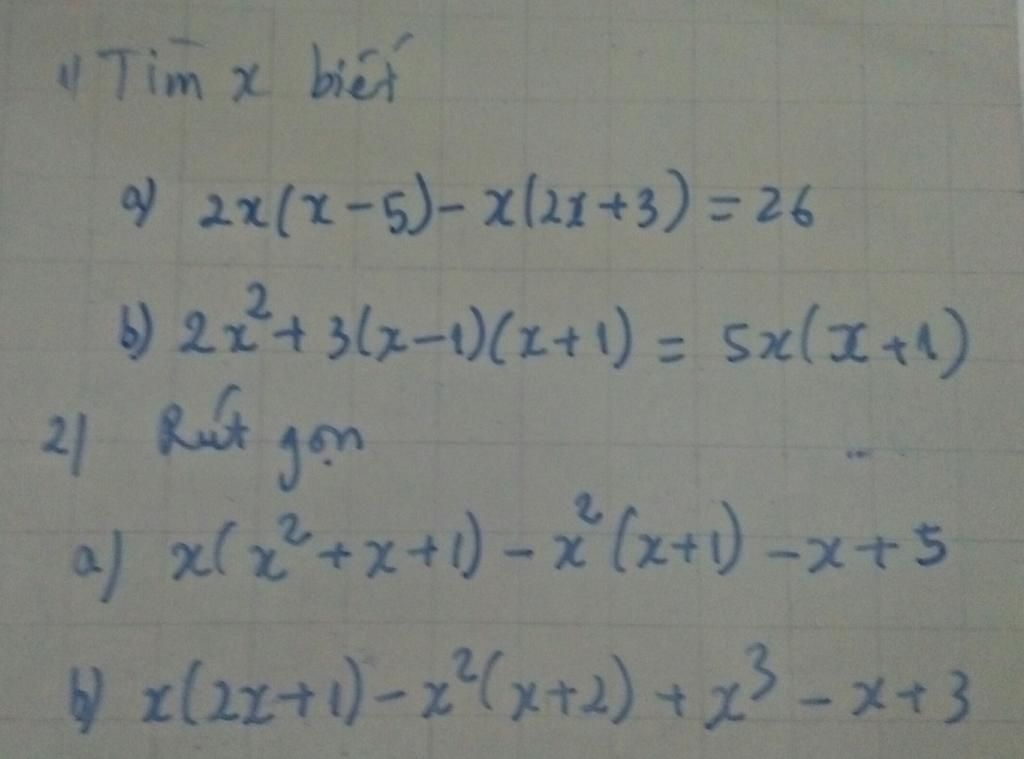 1) Tìm x biết
a) 2x(x-5)-x(2x+3)=26
b) 2x²+3(x-1)(x+1) = 5x(x+1)
2) Rút gọn
a) x(x²+x+1)-x²(x+1)-x+5
b) x(2x+1)-x²(x+2)+x³-x+3